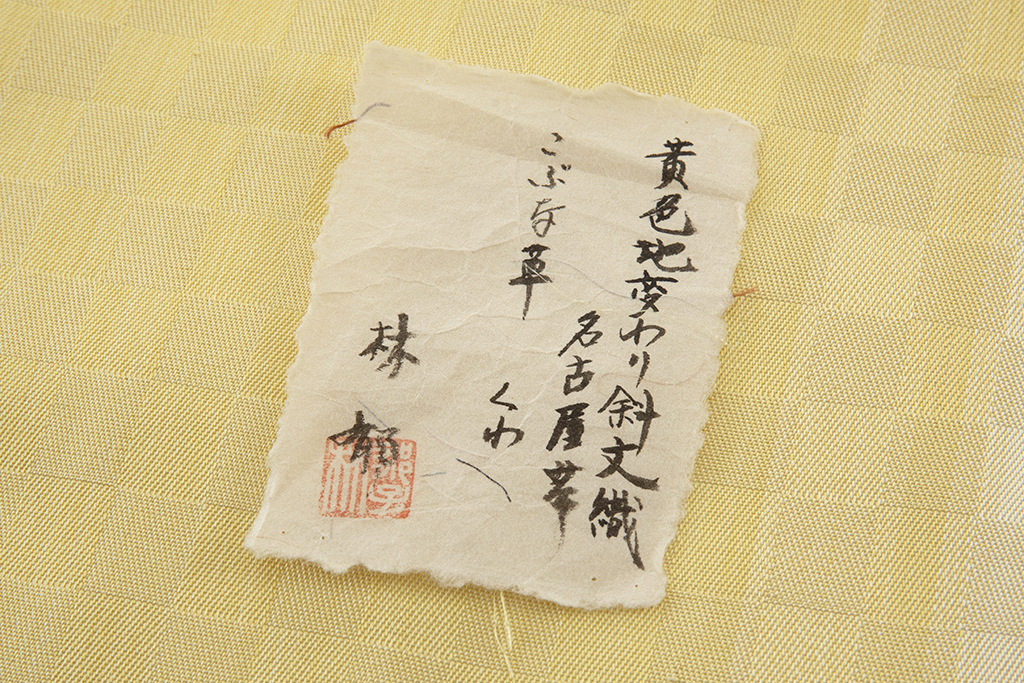 黄色地変わり斜文織
名古屋帯
こぶな草
くわ
林 郁